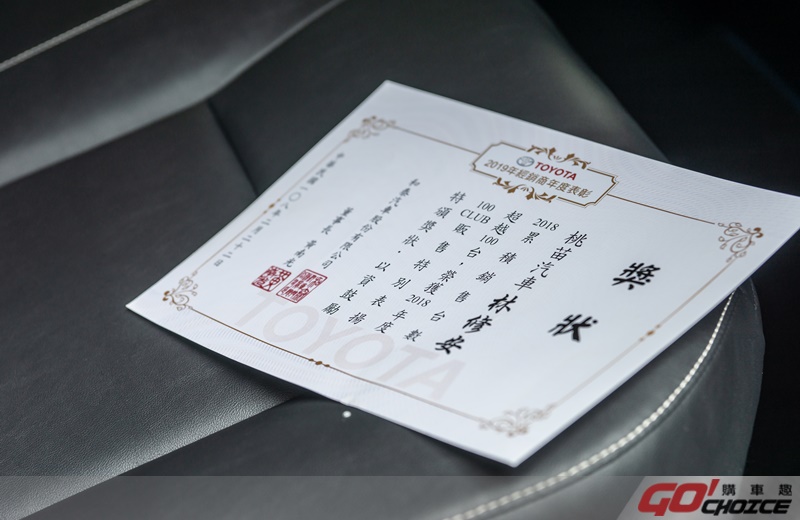 TOYOTA
2019年經銷商年度表彰
獎狀
桃苗汽車 林修安
2018累積銷售台數
超越100台,榮獲2018年度
100 CLUB販售,特別表揚
特頒獎狀,以資鼓勵
和泰汽車股份有限公司
董事長 黃南光
中華民國一〇八年二月二十二日
TOYOTA
GO!CHOICE 購車趣